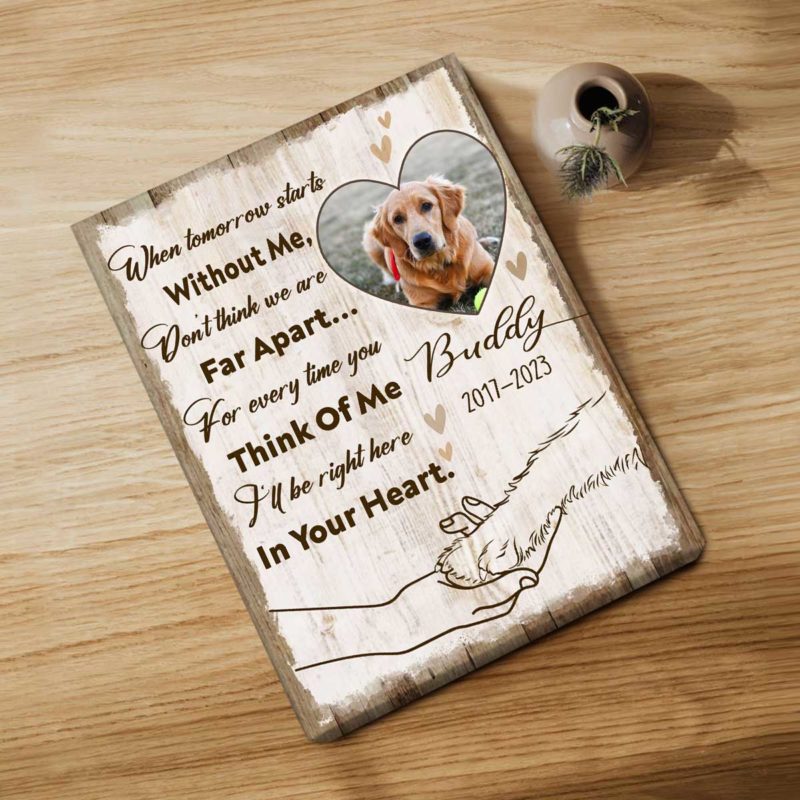 When tomorrow starts
Without Me,
Don't think we are
Far Apart...
For every time you
Think Of Me
I'll be right here
In Your Heart.
Buddy
2017–2023